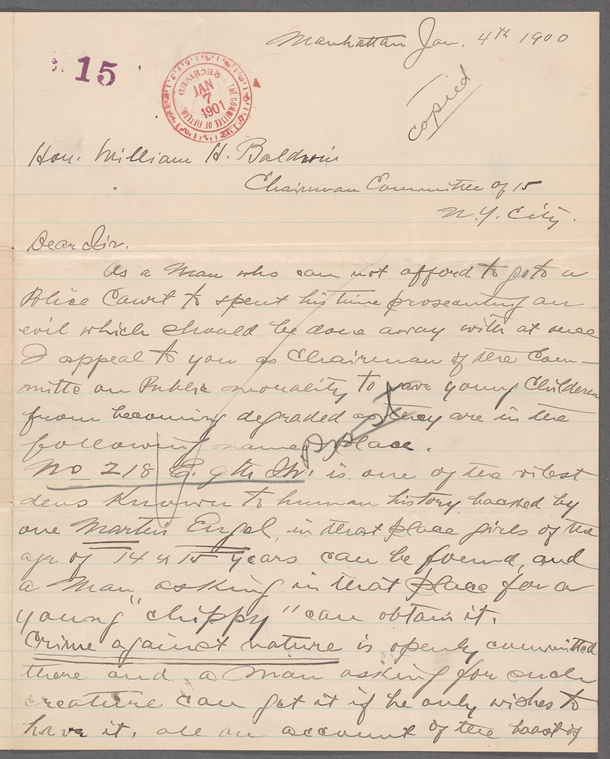 Manhattan Jan. 4th 1900
15
THE COMMITTEE OF FIFTEEN.
RECEIVED
JAN
7
1901
copied
Hon. William H. Baldwin
Chairman Committee of 15
N.Y. City.
Dear Sir.
As a Man who can not afford to go to a
Police Court to spent his time prosecuting an
evil which should be done away with at once
I appeal to you as Chairman of the Com-
mitte on Public morality to save young Children
from becoming degraded as they are in the
following named place.
No 218 E. 9th St. is one of the vilest
dens Known to human history backed by
one Martin Engel, in that place girls of the
age of 14 & 15 years can be found, and
a Man asking in that place for a
young "chippy" can obtain it.
Crime against nature is openly committed
there and a Man asking for such
creature can get it if he only wishes to
have it, all on account of the boast of